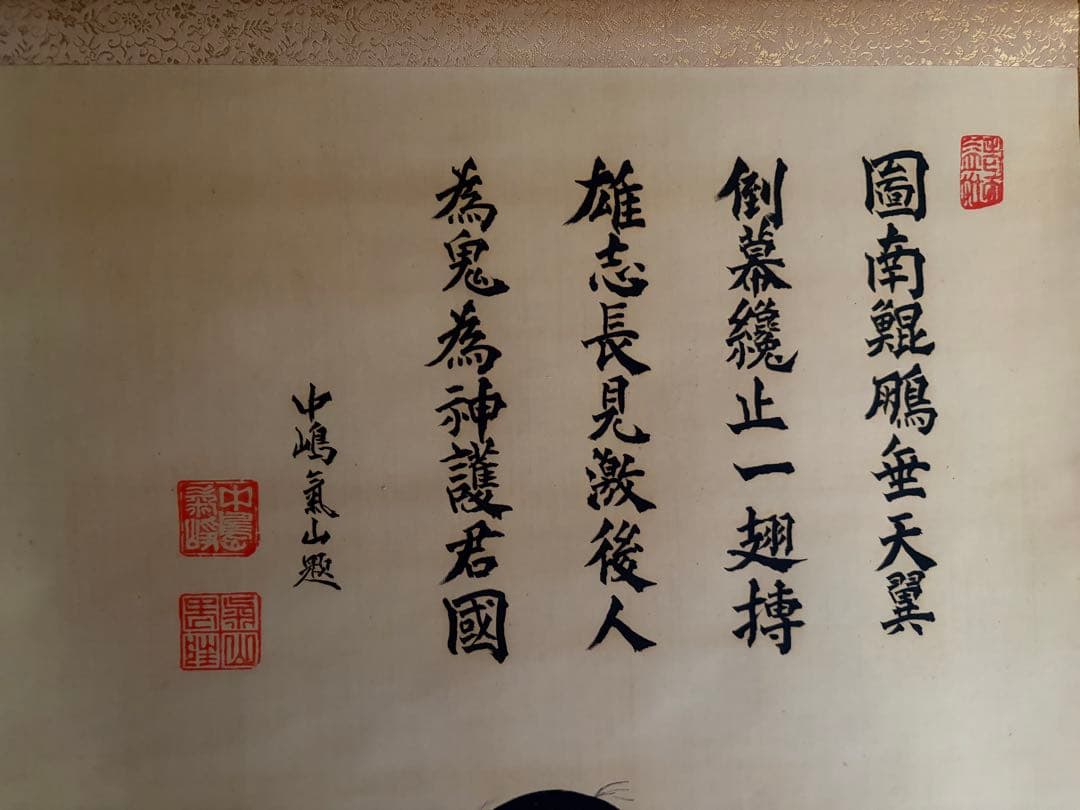 圖南鯤鵬垂天翼
倒幕纔止一翅搏
雄志長見激後人
為鬼為神護君國
中嶋氣山題